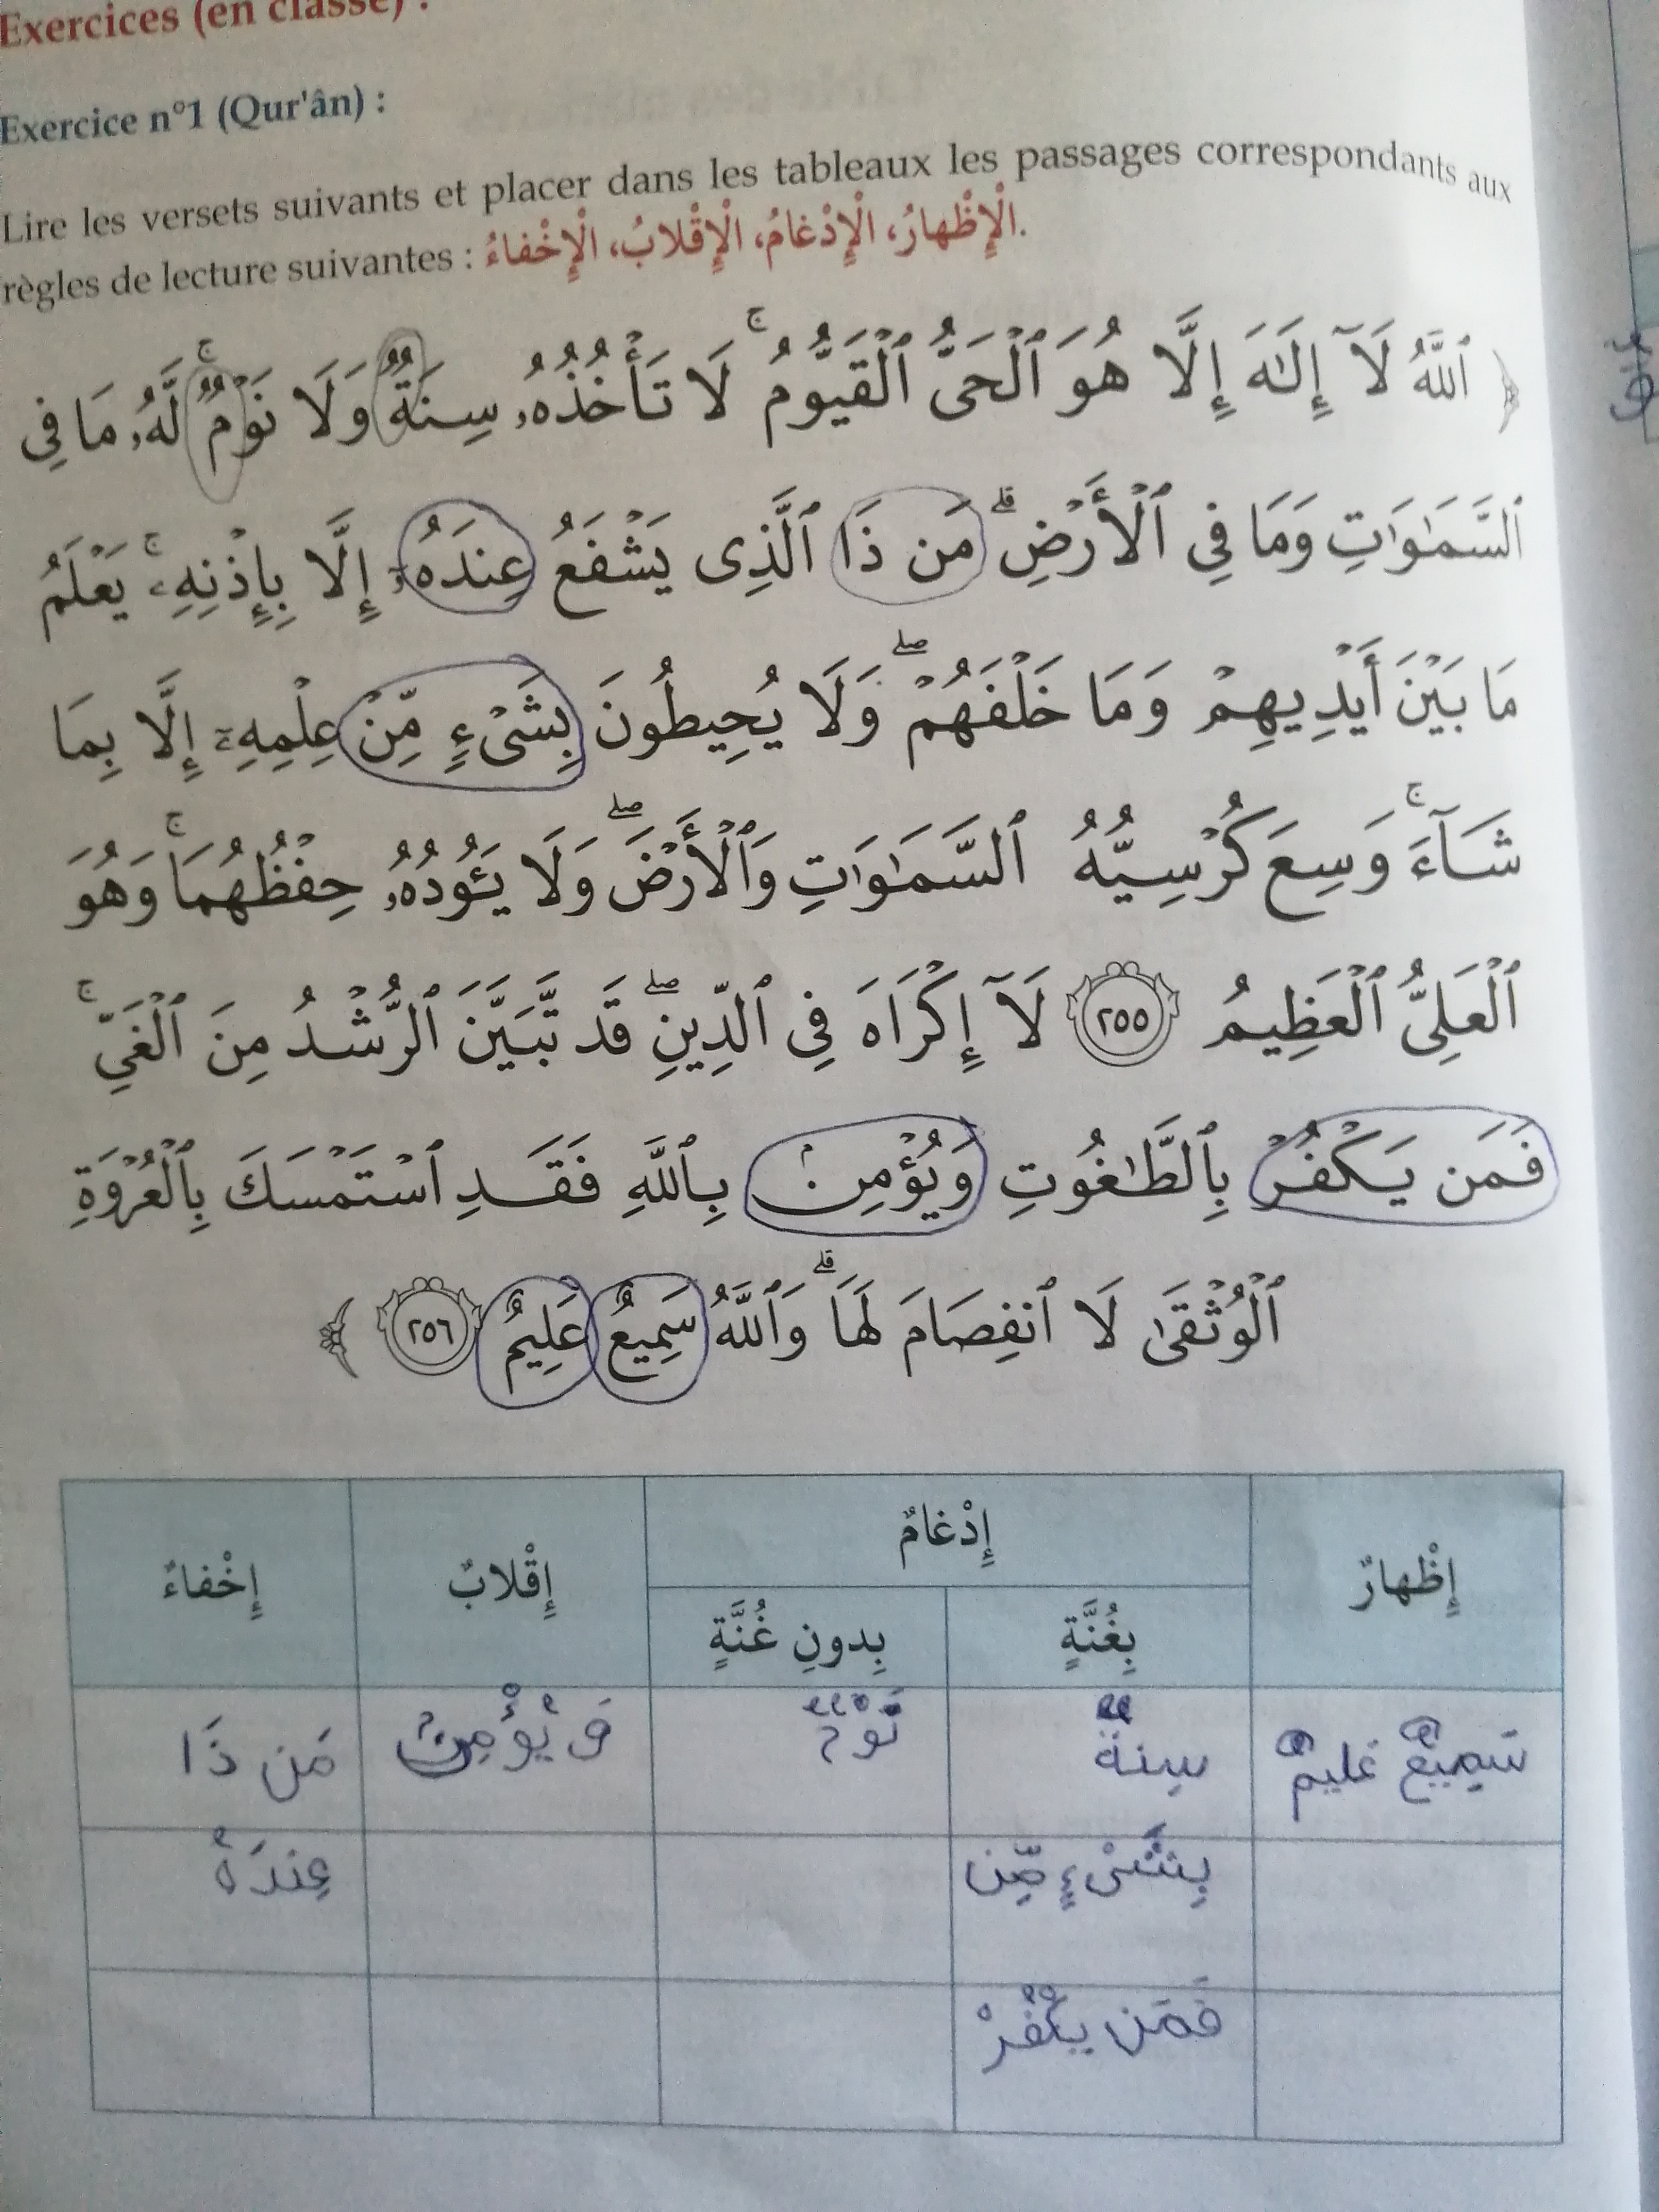 Exercices (en classe) :
Exercice n°1 (Qur'ân) :
Lire les versets suivants et placer dans les tableaux les passages correspondants aux
règles de lecture suivantes : الْإِظْهارُ، الْإِدْغامُ، الْإِقْلابُ، الْإِخْفاءُ.
﴿ ٱللَّهُ لَآ إِلَـٰهَ إِلَّا هُوَ ٱلْحَىُّ ٱلْقَيُّومُ ۚ لَا تَأْخُذُهُۥ سِنَةٌ وَلَا نَوْمٌ ۚ لَّهُۥ مَا فِى
ٱلسَّمَـٰوَٰتِ وَمَا فِى ٱلْأَرْضِ ۗ مَن ذَا ٱلَّذِى يَشْفَعُ عِندَهُۥٓ إِلَّا بِإِذْنِهِۦ ۚ يَعْلَمُ
مَا بَيْنَ أَيْدِيهِمْ وَمَا خَلْفَهُمْ ۖ وَلَا يُحِيطُونَ بِشَىْءٍ مِّنْ عِلْمِهِۦٓ إِلَّا بِمَا
شَآءَ ۚ وَسِعَ كُرْسِيُّهُ ٱلسَّمَـٰوَٰتِ وَٱلْأَرْضَ ۖ وَلَا يَـُٔودُهُۥ حِفْظُهُمَا ۚ وَهُوَ
ٱلْعَلِىُّ ٱلْعَظِيمُ ٢٥٥ لَآ إِكْرَاهَ فِى ٱلدِّينِ ۖ قَد تَّبَيَّنَ ٱلرُّشْدُ مِنَ ٱلْغَىِّ ۚ
فَمَن يَكْفُرْ بِٱلطَّـٰغُوتِ وَيُؤْمِنۢ بِٱللَّهِ فَقَدِ ٱسْتَمْسَكَ بِٱلْعُرْوَةِ
ٱلْوُثْقَىٰ لَا ٱنفِصَامَ لَهَا ۗ وَٱللَّهُ سَمِيعٌ عَلِيمٌ ٢٥٦ ﴾
إِظْهارٌ إِدْغامٌ إِقْلابٌ إِخْفاءٌ
بِغُنَّةٍ بِدونِ غُنَّةٍ
سَمِيعٌ عَلِيمٌ سِنَةٌ نَوْمٌ وَيُؤْمِنۢ مَن ذَا
بِشَىْءٍ مِّن عِندَهُ
فَمَن يَكْفُرْ